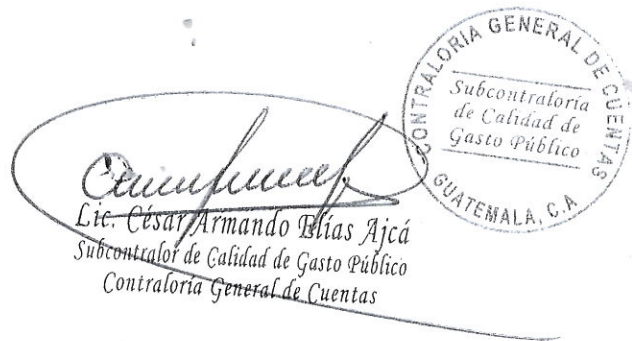 CONTRALORIA GENERAL DE CUENTAS
Subcontraloría
de Calidad de
Gasto Público
GUATEMALA, C.A
Lic. César Armando Elías Ajcá
Subcontralor de Calidad de Gasto Público
Contraloría General de Cuentas